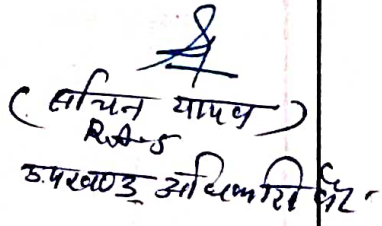 ( सचिन यादव )
R.A.S
उपखण्ड अधिकारी